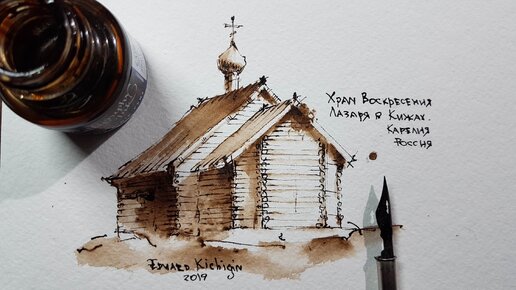 Храм Воскресения
Лазаря в Кижах.
Карелия
Россия
Eduard Kichigin
2019